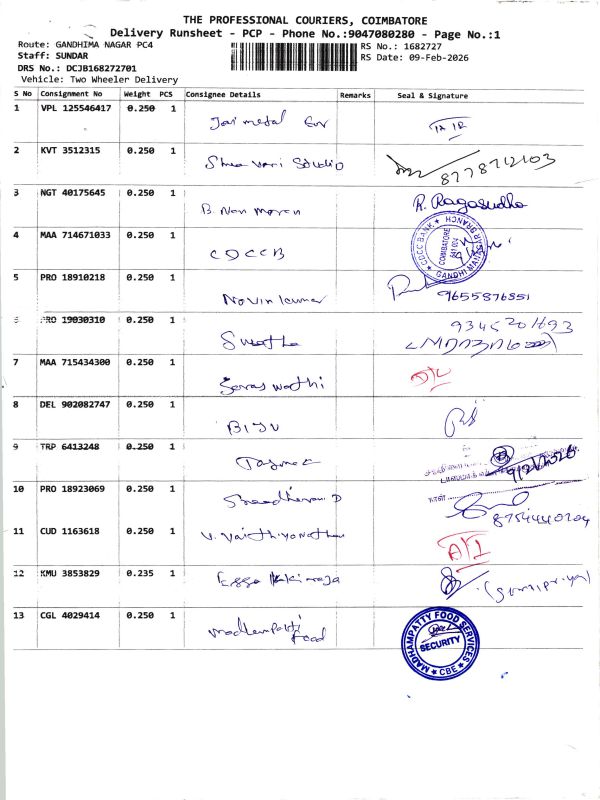 THE PROFESSIONAL COURIERS, COIMBATORE
Delivery Runsheet - PCP - Phone No.:9047080280 - Page No.:1
Route: GANDHIMA NAGAR PC4
RS No.: 1682727
Staff: SUNDAR
RS Date: 09-Feb-2026
DRS No.: DCJB168272701
Vehicle: Two Wheeler Delivery
S No Consignment No Weight PCS Consignee Details Remarks Seal & Signature
1 VPL 125546417 0.250 1 Jai metal
2 KVT 3512315 0.250 1 Shree vari Studio 8778712103
3 NGT 40175645 0.250 1 B. R. Ragasudha
4 MAA 714671033 0.250 1 CDCCB CDCC BANK GANDHI MANAGAR BRANCH COIMBATORE 641 004
5 PRO 18910218 0.250 1 Navin kumar 9655876551
6 PRO 19030310 0.250 1 Swatha
7 MAA 715434300 0.250 1 Saraswathi D/L
8 DEL 902082747 0.250 1 BIJU
9 TRP 6413248 0.250 1 Tasmac
10 PRO 18923069 0.250 1 நாள்
11 CUD 1163618 0.250 1 V. Vaithiyanathan
12 KMU 3853829 0.235 1
13 CGL 4029414 0.250 1 madhampatti food MADHAMPATTY FOOD SERVICES SECURITY CBE